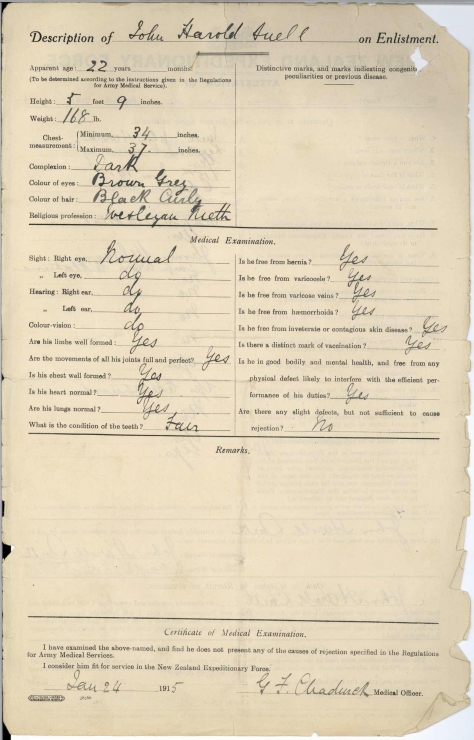 Description of John Harold on Enlistment.
Apparent age: 22 years months
(To be determined according to the instructions given in the Regulations
for Army Medical Service).
Height: 5 feet 9 inches.
Weight: 168 lb.
Chest-measurement: Minimum, 34 inches.
Maximum, 37. inches.
Complexion: Dark
Colour of eyes: Brown Grey
Colour of hair: Black Curly
Religious profession: Wesleyan Meth
Distinctive marks, and marks indicating congenital
peculiarities or previous disease.
Medical Examination.
Sight: Right eye, Normal
„ Left eye, do
Hearing: Right ear, do
„ Left ear, do
Colour-vision: do
Are his limbs well formed? Yes
Are the movements of all his joints full and perfect? Yes
Is his chest well formed? Yes
Is his heart normal? Yes
Are his lungs normal? Yes
What is the condition of the teeth? Fair
Is he free from hernia? Yes
Is he free from varicocele? Yes
Is he free from varicose veins? Yes
Is he free from hæmorrhoids? Yes
Is he free from inveterate or contagious skin disease? Yes
Is there a distinct mark of vaccination? Yes
Is he in good bodily and mental health, and free from any
physical defect likely to interfere with the efficient per-
formance of his duties? Yes
Are there any slight defects, but not sufficient to cause
rejection? No
Remarks.
Certificate of Medical Examination.
I have examined the above-named, and find he does not present any of the causes of rejection specified in the Regulations
for Army Medical Services.
I consider him fit for service in the New Zealand Expeditionary Force.
Jan 24 1915
G F Chadwick Medical Officer.